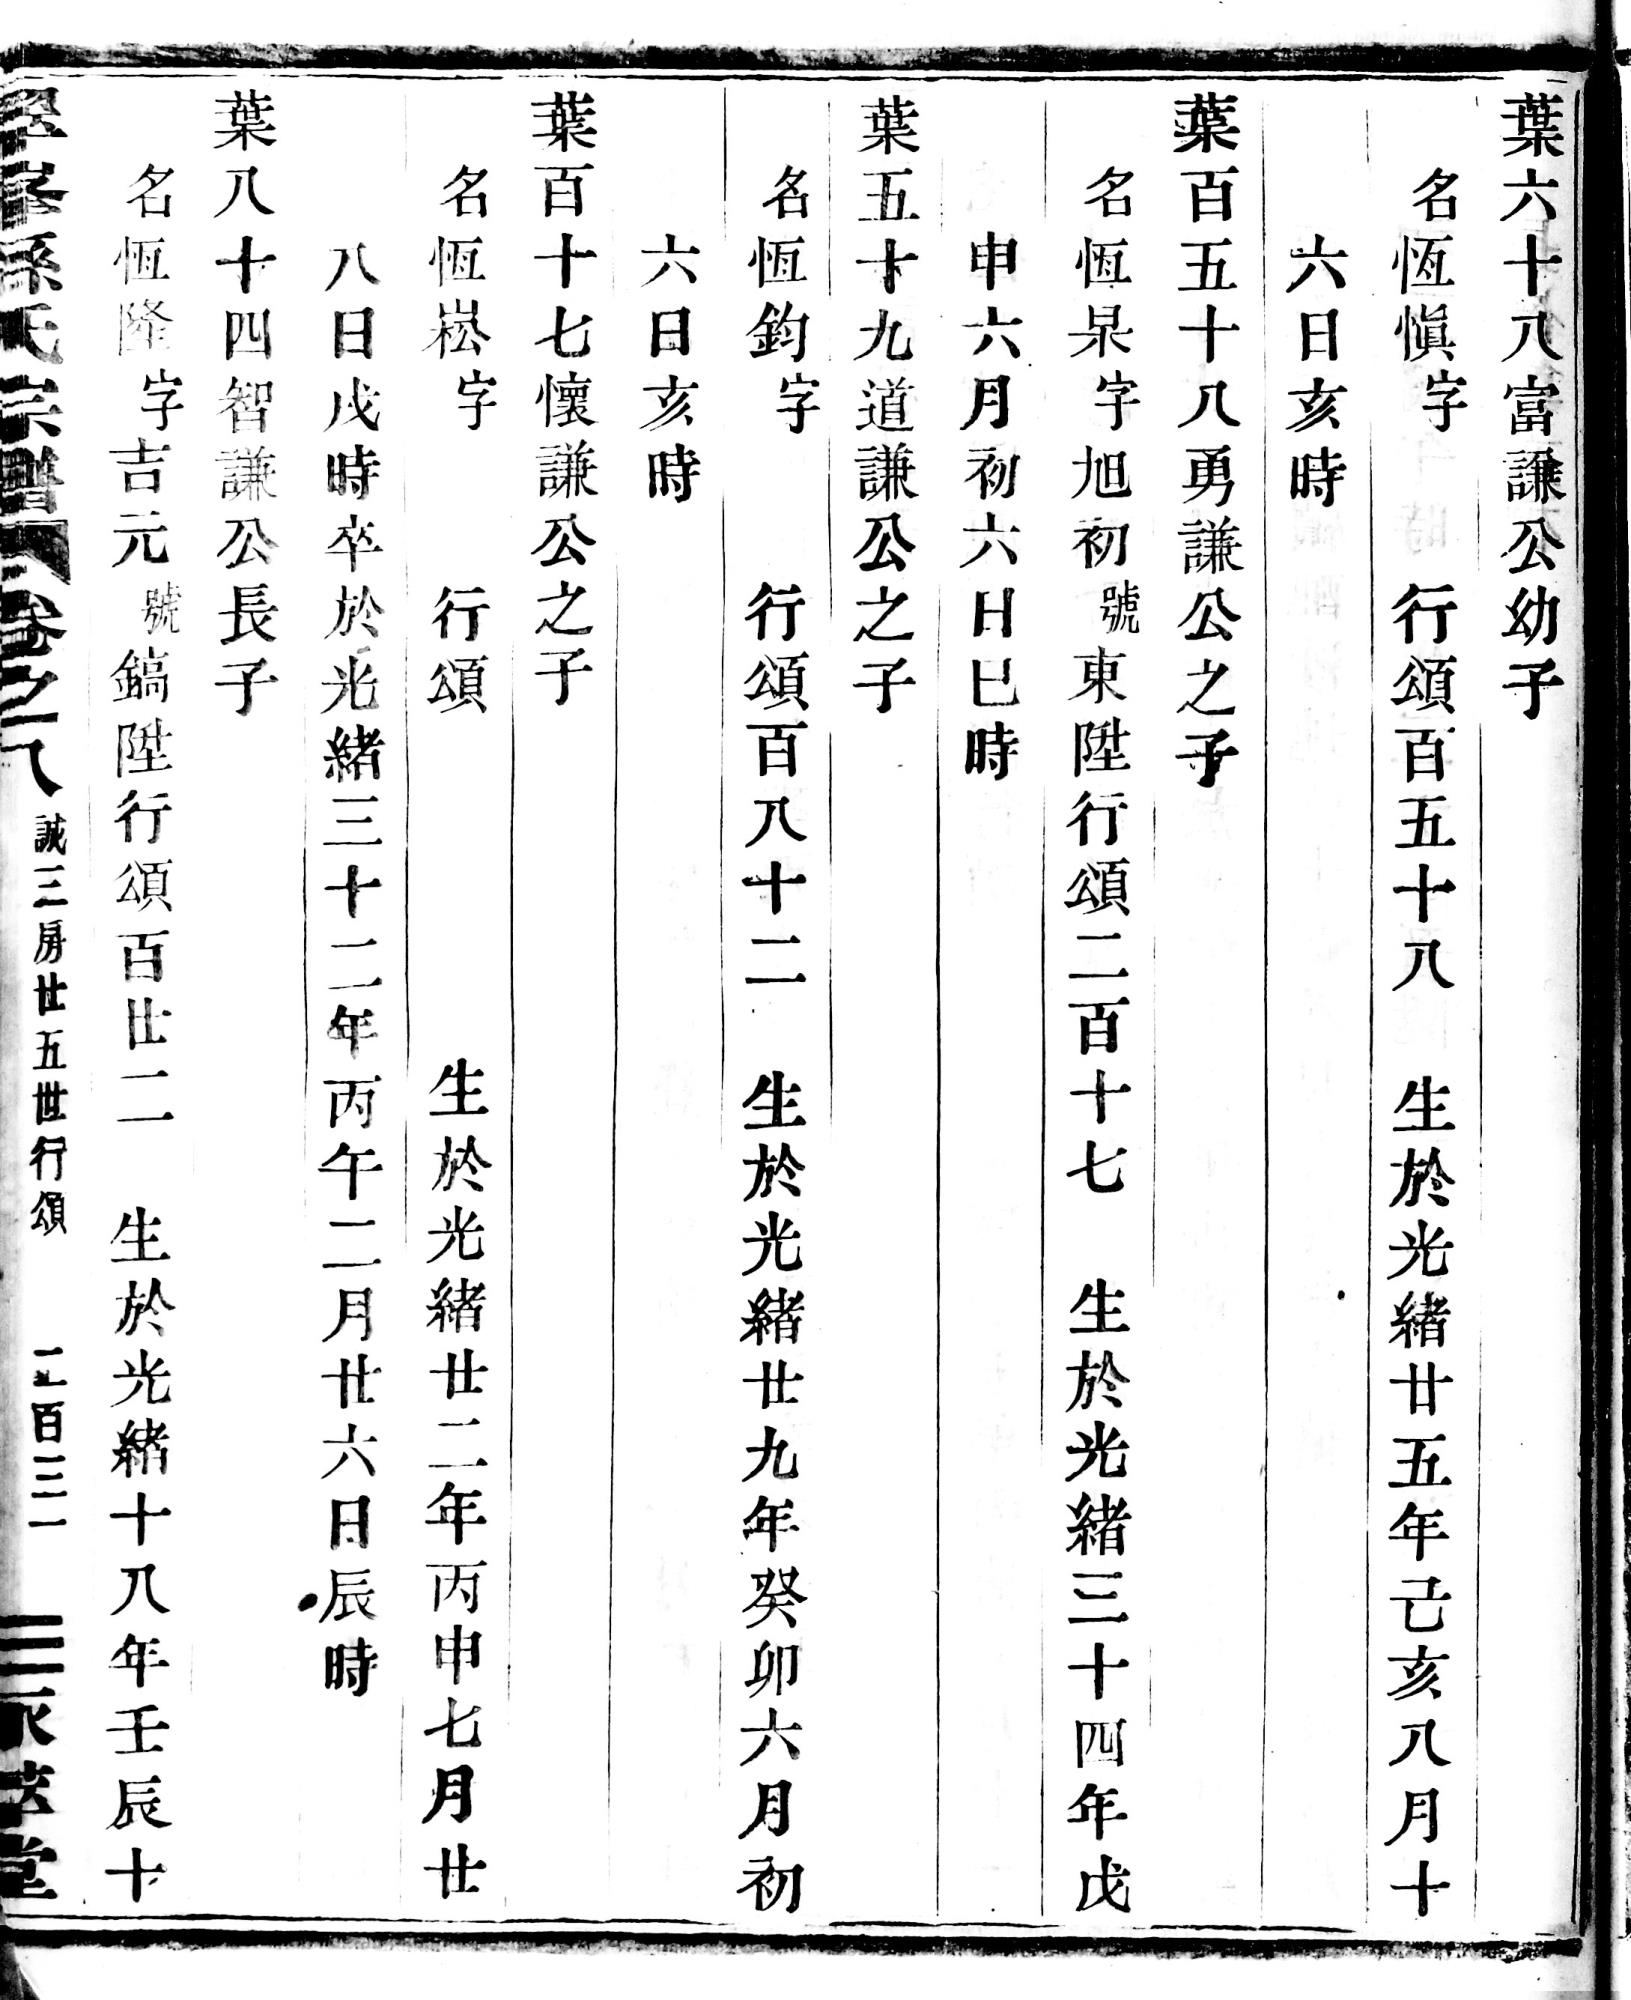 葉六十八富謙公幼子
名恆愼字 行頌百五十八 生於光緒廿五年己亥八月十
六日亥時
葉百五十八勇謙公之子
名恆杲字旭初號東陞行頌二百十七 生於光緒三十四年戊
申六月初六日巳時
葉五十九道謙公之子
名恆鈞字 行頌百八十二 生於光緒廿九年癸卯六月初
六日亥時
葉百十七懷謙公之子
名恆崧字 行頌 生於光緒廿二年丙申七月廿
八日戌時卒於光緒三十二年丙午二月廿六日辰時
葉八十四智謙公長子
名恆隆字吉元號鎬陞行頌百廿二 生於光緒十八年壬辰十
孫氏宗譜 卷之八 誠三房廿五世行頌 二百三二 堂